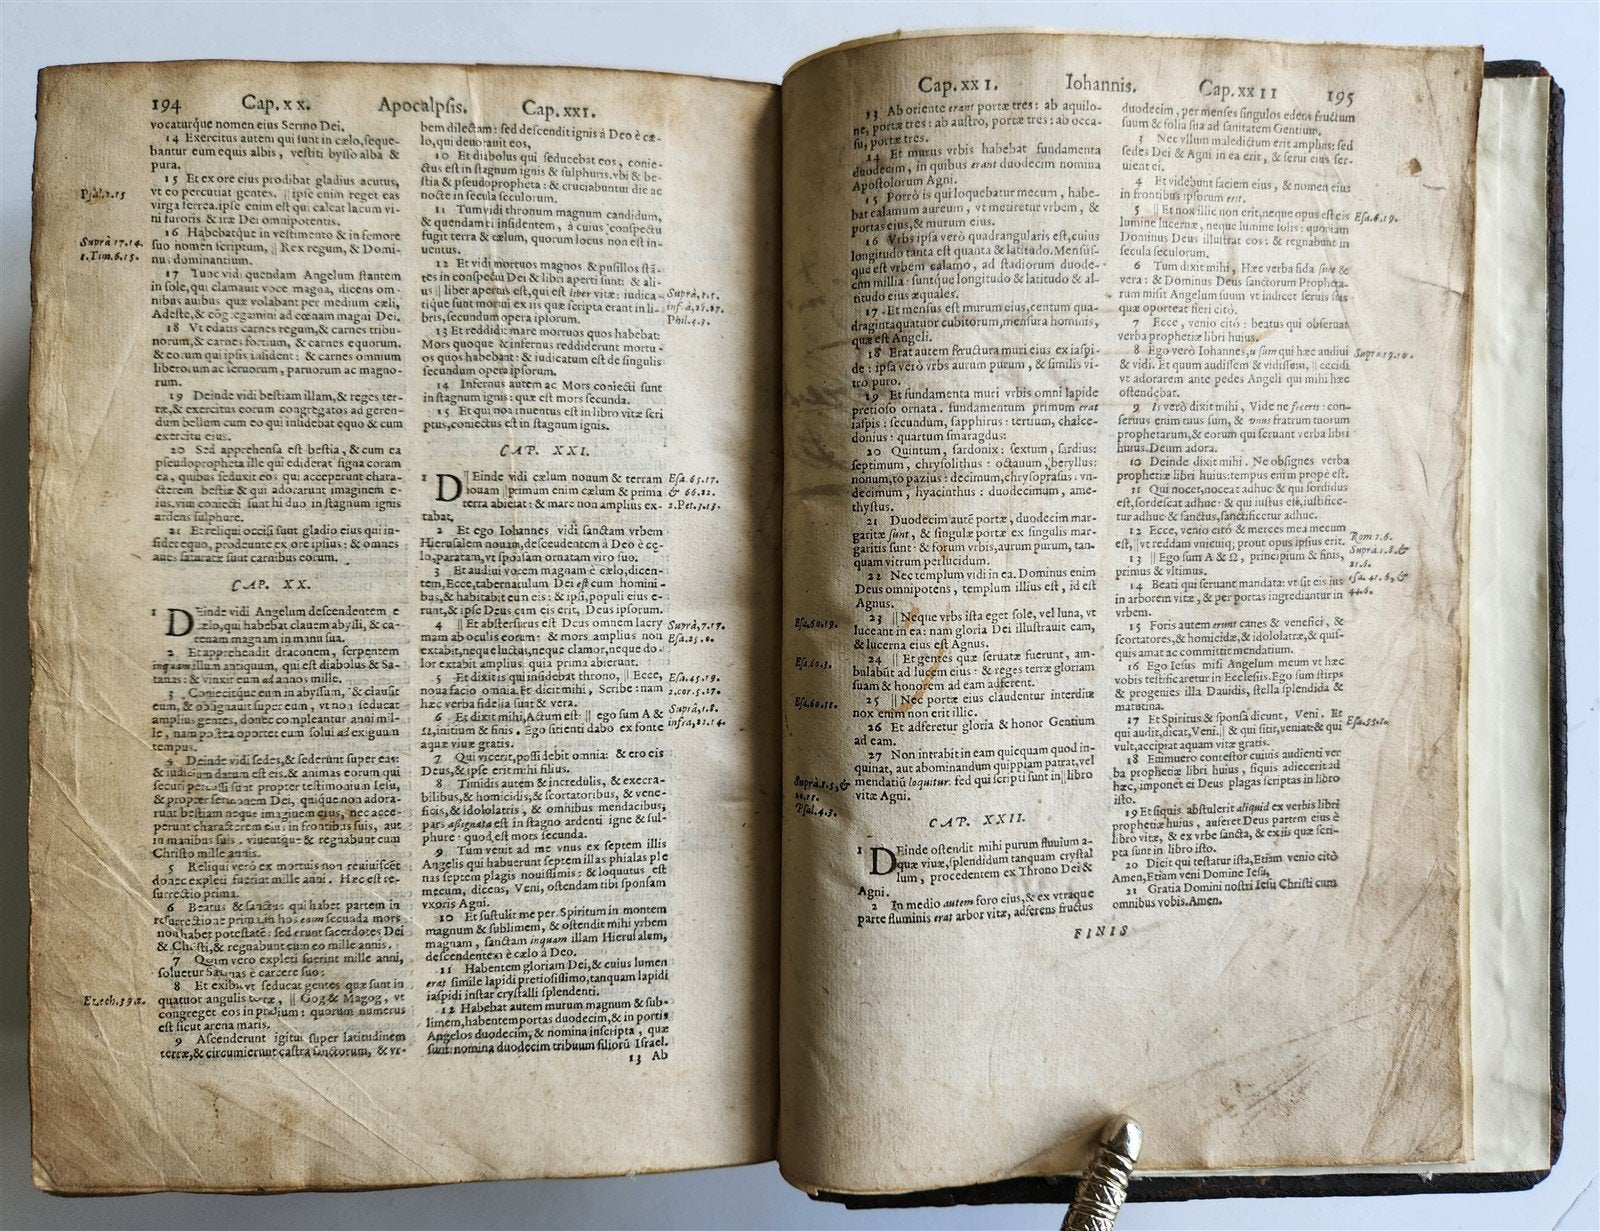 194 Cap. XX. Apocalpsis. Cap. XXI.
vocaturque nomen eius Sermo Dei.
14 Exercitus autem qui sunt in cælo, seque-
bantur eum equis albis, vestiti bysso alba &
pura.
15 Et ex ore eius prodibat gladius acutus,
vt eo percutiat gentes. || ipse enim reget eas
virga ferrea. ipse enim est qui calcat lacum vi-
ni furoris & iræ Dei omnipotentis.
16 Habebatque in vestimento & in femore
suo nomen scriptum, || Rex regum, & Domi-
nus dominantium.
17 Tunc vidi quendam Angelum stantem
in sole, qui clamauit voce magna, dicens om-
nibus auibus quæ volabant per medium cæli,
Adeste, & cōgregamini ad cœnam magni Dei.
18 Vt edatis carnes regum, & carnes tribu-
norum, & carnes fortium, & carnes equorum.
& eorum qui ipsis insident: & carnes omnium
liberorum ac seruorum, paruorum ac magno-
rum.
19 Deinde vidi bestiam illam, & reges ter-
ræ, & exercitus eorum congregatos ad geren-
dum bellum cum eo qui insidebat equo & cum
exercitu eius.
20 Sed apprehensa est bestia, & cum ea
pseudopropheta ille qui ediderat signa coram
ea, quibus seduxit eos qui acceperunt chara-
cterem bestiæ & qui adorarunt imaginem e-
ius. viui coniecti sunt hi duo in stagnum ignis
ardens sulphure.
21 Et reliqui occisi sunt gladio eius qui in-
sidet equo, prodeunte ex ore ipsius: & omnes
aues saturatæ sunt carnibus eorum.
CAP. XX.
1 DEinde vidi Angelum descendentem e
cælo, qui habebat clauem abyssi, & ca-
tenam magnam in manu sua.
2 Et apprehendit draconem, serpentem
inquam illum antiquum, qui est diabolus & Sa-
tanas: & vinxit eum ad annos mille.
3 Coniecitque eum in abyssum, & clausit
eum, & obsignauit super eum, vt non seducat
amplius gentes, donec compleantur anni mil-
le, nam postea oportet eum solui ad exiguum
tempus.
4 Deinde vidi sedes, & sederunt super eas:
& iudicium datum est eis. & animas eorum qui
securi percussi sunt propter testimonium Iesu,
& propter sermonem Dei, quique non adora-
runt bestiam neque imaginem eius, nec acce-
perunt characterem eius in frontibus suis, aut
in manibus suis. viuentque & regnabunt cum
Christo mille annis.
5 Reliqui verò ex mortuis non reuiuiscēt
donec expleti fuerint mille anni. Hæc est re-
surrectio prima.
6 Beatus & sanctus qui habet partem in
resurrectione prima. in hos eam secūda mors
non habet potestatē: sed erunt sacerdotes Dei
& Christi, & regnabunt cum eo mille annis.
7 Quum vero expleti fuerint mille anni,
soluetur Satanas è carcere suo:
8 Et exibit vt seducat gentes quæ sunt in
quatuor angulis terræ, || Gog & Magog, vt
congreget eos in prælium: quorum numerus
est sicut arena maris.
9 Ascenderunt igitur super latitudinem
terræ, & circumierunt castra sanctorum, & vr-
Psal.2.15
Suprà 17.14.
1.Tim.6.15.
Ezech.39.2.
bem dilectam: sed descendit ignis à Deo è cæ-
lo, qui deuorauit eos,
10 Et diabolus qui seducebat eos, conie-
ctus est in stagnum ignis & sulphuris. vbi & be-
stia & pseudopropheta: & cruciabuntur die ac
nocte in secula seculorum.
11 Tum vidi thronum magnum candidum,
& quendam ei insidentem, à cuius conspectu
fugit terra & cælum, quorum locus non est in-
uentus.
12 Et vidi mortuos magnos & pusillos stā-
tes in conspectu Dei & libri aperti sunt: & ali-
us || liber apertus est, qui est liber vitæ: iudica-
tique sunt mortui ex iis quæ scripta erant in li-
bris, secundum opera ipsorum.
13 Et reddidit mare mortuos quos habebat:
Mors quoque & infernus reddiderunt mortu-
os quos habebant: & iudicatum est de singulis
secundum opera ipsorum.
14 Infernus autem ac Mors coniecti sunt
in stagnum ignis: quæ est mors secunda.
15 Et qui non inuentus est in libro vitæ scri
ptus, coniectus est in stagnum ignis.
CAP. XXI.
1 DEinde vidi cælum nouum & terram
nouam || primum enim cælum & prima
terra abierat: & mare non amplius ex-
tabat.
2 Et ego Iohannes vidi sanctam vrbem
Hierusalem nouam, descendentem à Deo è cę-
lo, paratam, vt sponsam ornatam viro suo.
3 Et audiui vocem magnam è cælo, dicen-
tem, Ecce, tabernaculum Dei est cum homini-
bus, & habitabit cum eis: & ipsi, populi eius e-
runt, & ipse Deus cum eis erit, Deus ipsorum.
4 || Et abstersurus est Deus omnem lacry
mam ab oculis eorum: & mors amplius non
extabit, neque luctus, neque clamor, neque do-
lor extabit amplius quia prima abierunt.
5 Et dixit is qui insidebat throno, || Ecce,
noua facio omnia. Et dicit mihi, Scribe: nam
hæc verba fidelia sunt & vera.
6 Et dixit mihi, Actum est: || ego sum A &
Ω, initium & finis. Ego sitienti dabo ex fonte
aquæ viuæ gratis.
7 Qui vicerit, possidebit omnia: & ero eis
Deus, & ipse erit mihi filius.
8 Timidis autem & incredulis, & execra-
bilibus, & homicidis, & scortatoribus, & vene-
ficis, & idololatris, & omnibus mendacibus;
pars assignata est in stagno ardenti igne & sul-
phure: quod est mors secunda.
9 Tum venit ad me vnus ex septem illis
Angelis qui habuerunt septem illas phialas ple
nas septem plagis nouissimis: & loquutus est
mecum, dicens, Veni, ostendam tibi sponsam
vxoris Agni.
10 Et sustulit me per Spiritum in montem
magnum & sublimem, & ostendit mihi vrbem
magnam, sanctam inquam illam Hierusalem,
descendentem è cælo à Deo.
11 Habentem gloriam Dei, & cuius lumen
erat simile lapidi pretiosissimo, tanquam lapidi
iaspidi instar crystalli splendenti.
12 Habebat autem murum magnum & sub-
limem, habentem portas duodecim, & in portis
Angelos duodecim, & nomina inscripta, quæ
sunt nomina duodecim tribuum filiorū Israel.
13 Ab
Phil.4.3.
Esa.65.17.
& 66.22.
2.Pet.3.13.
Suprà,7.17.
Esa.25.8.
Esa.43.19.
2.cor.5.17.
Suprà,1.8.
infra,22.14.
Cap. XXI. Iohannis. Cap. XXII 195
13 Ab oriente erant portæ tres: ab aquilo-
ne, portæ tres: ab austro, portæ tres: ab occa-
su, portæ tres.
14 Et murus vrbis habebat fundamenta
duodecim, in quibus erant duodecim nomina
Apostolorum Agni.
15 Porrò is qui loquebatur mecum, habe-
bat calamum aureum, vt metiretur vrbem, &
portas eius, & murum eius.
16 Vrbs ipsa verò quadrangularis est, cuius
longitudo tanta est quanta & latitudo. Mensus-
que est vrbem calamo, ad stadiorum duode-
cim millia: suntque longitudo & latitudo & al-
titudo eius æquales.
17 Et mensus est murum eius, centum qua-
dragintaquatuor cubitorum, mensura hominis,
quæ est Angeli.
18 Erat autem structura muri eius ex iaspi-
de: ipsa verò vrbs aurum purum, & similis vi-
tro puro.
19 Et fundamenta muri vrbis omni lapide
pretioso ornata. fundamentum primum erat
iaspis: secundum, sapphirus: tertium, chalce-
donius: quartum smaragdus:
20 Quintum, sardonix: sextum, sardius:
septimum, chrysolithus: octauum, beryllus:
nonum, topazius: decimum, chrysoprasus: vn-
decimum, hyacinthus: duodecimum, ame-
thystus.
21 Duodecim autē portæ, duodecim mar-
garitæ sunt, & singulæ portæ ex singulis mar-
garitis sunt: & forum vrbis, aurum purum, tan-
quam vitrum perlucidum.
22 Nec templum vidi in ea. Dominus enim
Deus omnipotens, templum illius est, id est
Agnus.
23 || Neque vrbs ista eget sole, vel luna, vt
luceant in ea: nam gloria Dei illustrauit eam,
& lucerna eius est Agnus.
24 || Et gentes quæ seruatæ fuerunt, am-
bulabūt ad lucem eius: & reges terræ gloriam
suam & honorem ad eam adferent.
25 || Nec portæ eius claudentur interdiu:
nox enim non erit illic.
26 Et adferetur gloria & honor Gentium
ad eam.
27 Non intrabit in eam quicquam quod in-
quinat, aut abominandum quippiam patrat, vel
mendatiū loquitur. sed qui scripti sunt in || libro
vitæ Agni.
CAP. XXII.
1 DEinde ostendit mihi purum fluuium a-
quæ viuæ, splendidum tanquam crystal
lum, procedentem ex Throno Dei &
Agni.
2 In medio autem foro eius, & ex vtraque
parte fluminis erat arbor vitæ, adferens fructus
Esa.60.19.
Esa.60.3.
Esa.60.11.
Psal.4.3.
duodecim, per menses singulos edens fructum
suum & folia sua ad sanitatem Gentium.
3 Nec vllum maledictum erit amplius: sed
sedes Dei & Agni in ea erit, & serui eius ser-
uient ei.
4 Et videbunt faciem eius, & nomen eius
in frontibus ipsorum erit.
5 || Et nox illic non erit, neque opus est eis
lumine lucernæ, neque lumine solis: quoniam
Dominus Deus illustrat eos: & regnabunt in
secula seculorum.
6 Tum dixit mihi, Hæc verba fida sunt &
vera: & Dominus Deus sanctorum Propheta-
rum misit Angelum suum vt indicet seruis suis
quæ oporteat fieri citò.
7 Ecce, venio citò: beatus qui obseruat
verba prophetiæ libri huius.
8 Ego verò Iohannes, is sum qui hæc audiui
& vidi. Et quum audissem & vidissem, || cecidi
vt adorarem ante pedes Angeli qui mihi hæc
ostendebat.
9 Is verò dixit mihi, Vide ne feceris: con-
seruus enim tuus sum, & vnus fratrum tuorum
prophetarum, & eorum qui seruant verba libri
huius. Deum adora.
10 Deinde dixit mihi. Ne obsignes verba
prophetiæ libri huius: tempus enim prope est.
11 Qui nocet, noceat adhuc & qui sordidus
est, sordescat adhuc: & qui iustus est, iustifice-
tur adhuc & sanctus, sanctificetur adhuc.
12 Ecce, venio citò & merces mea mecum
est, || vt reddam vnicuiq; prout opus ipsius erit.
13 || Ego sum A & Ω, principium & finis,
primus & vltimus.
14 Beati qui seruant mandata: vt sit eis ius
in arborem vitæ, & per portas ingrediantur in
vrbem.
15 Foris autem erunt canes & venefici, &
scortatores, & homicidæ, & idololatræ, & quis-
quis amat ac committit mendatium.
16 Ego Iesus misi Angelum meum vt hæc
vobis testificaretur in Ecclesiis. Ego sum stirps
& progenies illa Dauidis, stella splendida &
matutina.
17 Et Spiritus & sponsa dicunt, Veni. Et
qui audit, dicat, Veni. || & qui sitit, veniat: & qui
vult, accipiat aquam vitæ gratis.
18 Enimuero contestor cuiuis audienti ver
ba prophetiæ libri huius, siquis adiecerit ad
hæc, imponet ei Deus plagas scriptas in libro
isto.
19 Et siquis abstulerit aliquid ex verbis libri
prophetiæ huius, auferet Deus partem eius è
libro vitæ, & ex vrbe sancta, & ex iis quæ scri-
pta sunt in libro isto.
20 Dicit qui testatur ista, Etiam venio citò
Amen, Etiam veni Domine Iesu,
21 Gratia Domini nostri Iesu Christi cum
omnibus vobis. Amen.
FINIS
Suprà.19.10.
Rom 2.6.
Suprà.1.8.&
21.6.
esa.41.6,&
44.6.